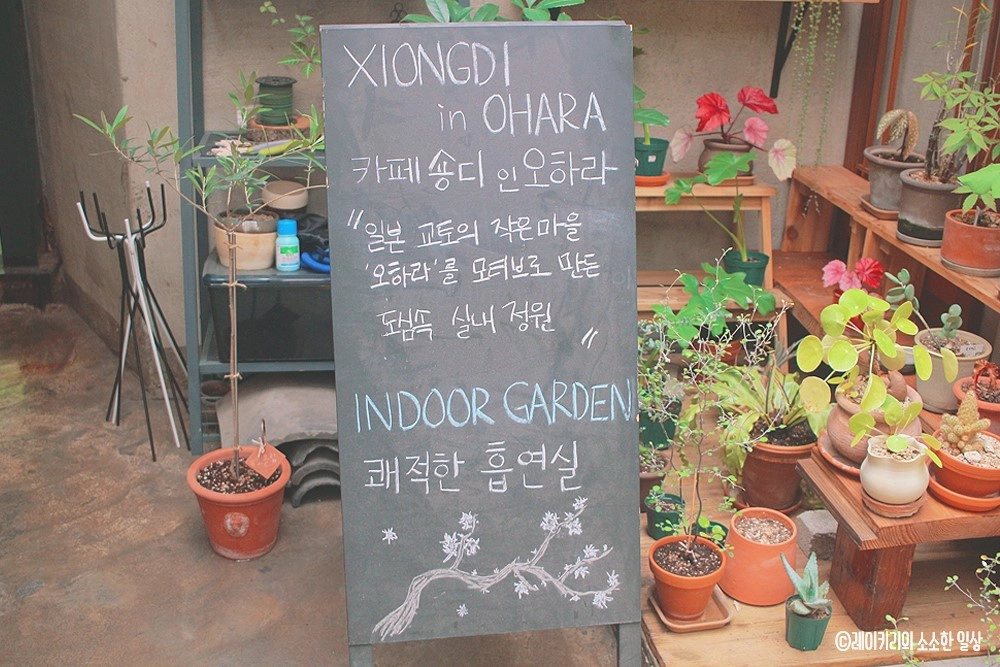 XIONGDI
in OHARA
카페 숑디 인 오하라
"일본 교토의 작은 마을
'오하라'를 모터브로 만든
도심속 실내 정원"
INDOOR GARDEN
쾌적한 흡연실
©레이키리의 소소한 일상